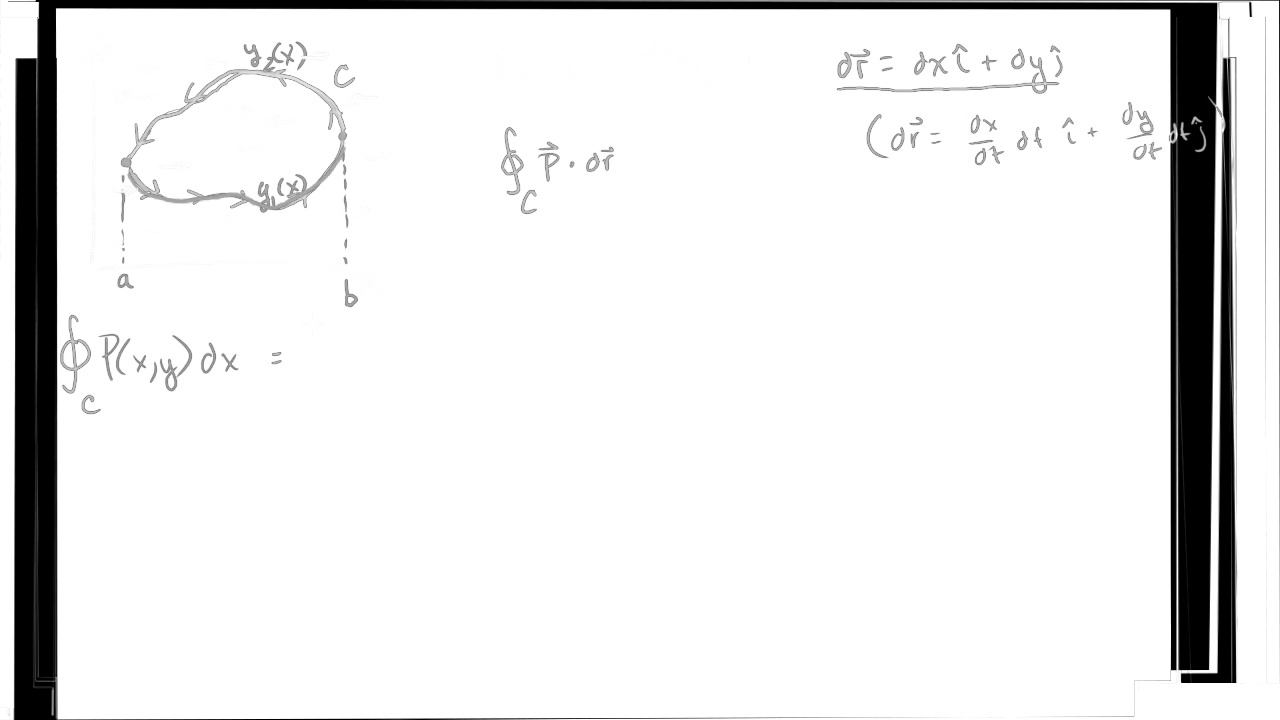 y₂(x)
C
y₁(x)
a
b
∮_C P⃗ · dr⃗
dr⃗ = dx î + dy ĵ
(dr⃗ = dx/dt dt î + dy/dt dt ĵ)
∮_C P(x,y) dx =